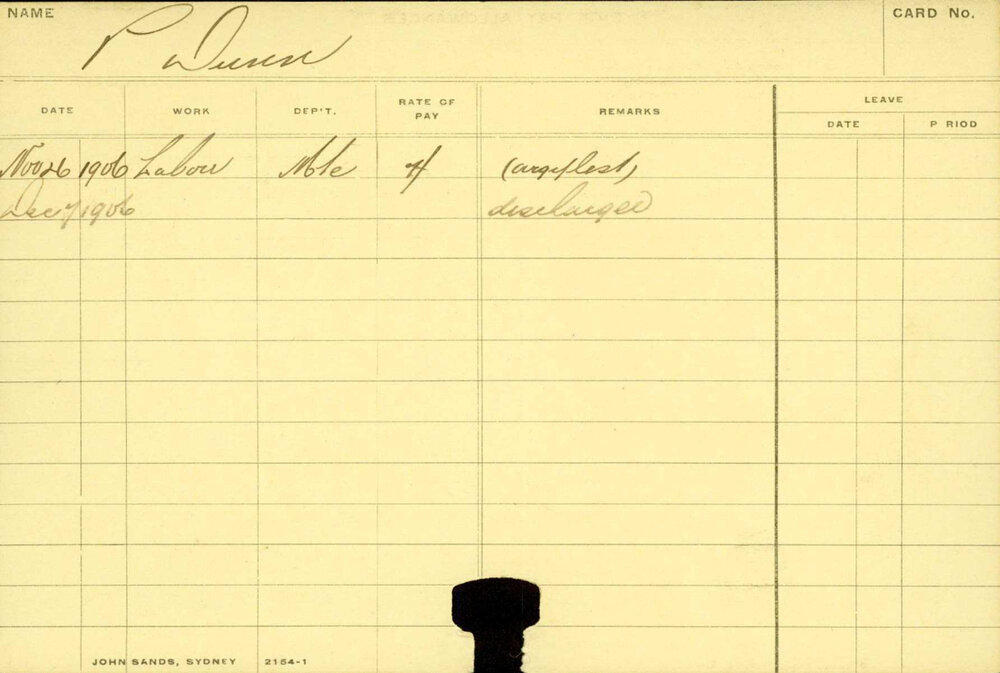 NAME P Dunn CARD No.
DATE WORK DEP'T. RATE OF PAY REMARKS LEAVE
DATE P RIOD
Nov 26 1906 Labour
Dec 7 1906 discharged
JOHN SANDS, SYDNEY 2154-1